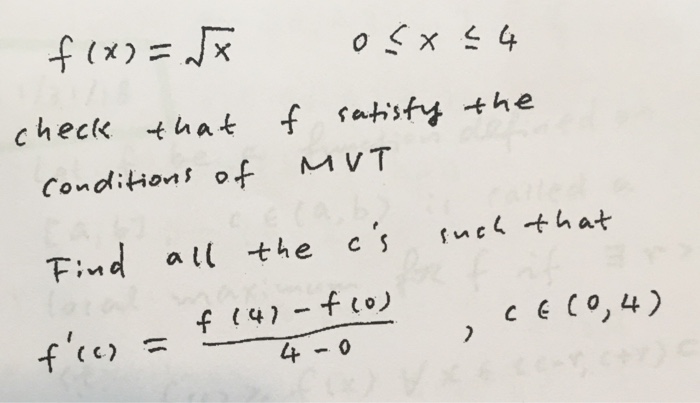 f(x) = √x    0 ≤ x ≤ 4
check that f satisfy the
conditions of MVT
Find all the c's such that
f'(c) = \frac{f(4) - f(0)}{4 - 0} , c ∈ (0,4)